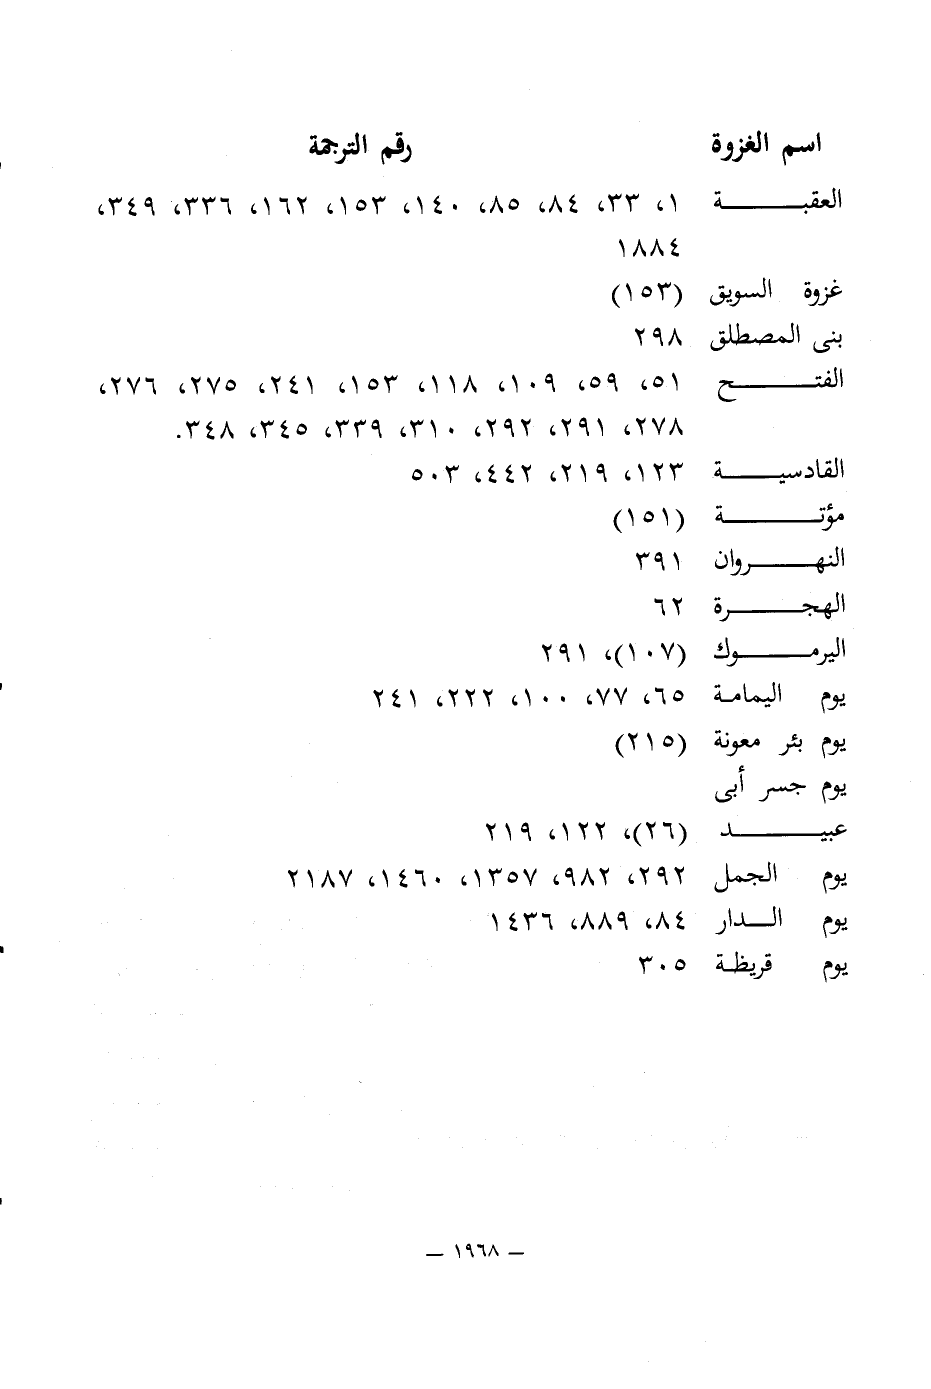 اسم الغزوة رقم الترجمة
العقبة ١، ٣٣، ٨٤، ٨٥، ١٤٠، ١٥٣، ١٦٢، ٣٣٦، ٣٤٩،
١٨٨٤
غزوة السويق (١٥٣)
بنى المصطلق ٢٩٨
الفتح ٥١، ٥٩، ١٠٩، ١١٨، ١٥٣، ٢٤١، ٢٧٥، ٢٧٦،
٢٧٨، ٢٩١، ٢٩٢، ٣١٠، ٣٣٩، ٣٤٥، ٣٤٨.
القادسية ١٢٣، ٢١٩، ٤٤٢، ٥٠٣
مؤتة (١٥١)
النهروان ٣٩١
الهجرة ٦٢
اليرموك (١٠٧)، ٢٩١
يوم اليمامة ٦٥، ٧٧، ١٠٠، ٢٢٢، ٢٤١
يوم بئر معونة (٢١٥)
يوم جسر أبى
عبيد (٢٦)، ١٢٢، ٢١٩
يوم الجمل ٢٩٢، ٩٨٢، ١٣٥٧، ١٤٦٠، ٢١٨٧
يوم الدار ٨٤، ٨٨٩، ١٤٣٦
يوم قريظة ٣٠٥
— ١٩٦٨ —